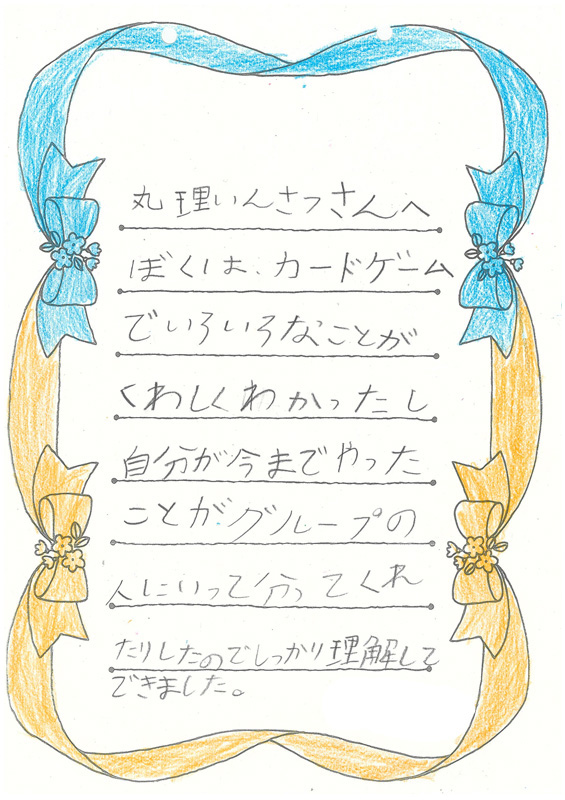 丸理いんさつさんへ
ぼくは、カードゲーム
でいろいろなことが
くわしくわかったし
自分が今までやった
ことがグループの
人にいって分ってくれ
たりしたのでしっかり理解して
できました。